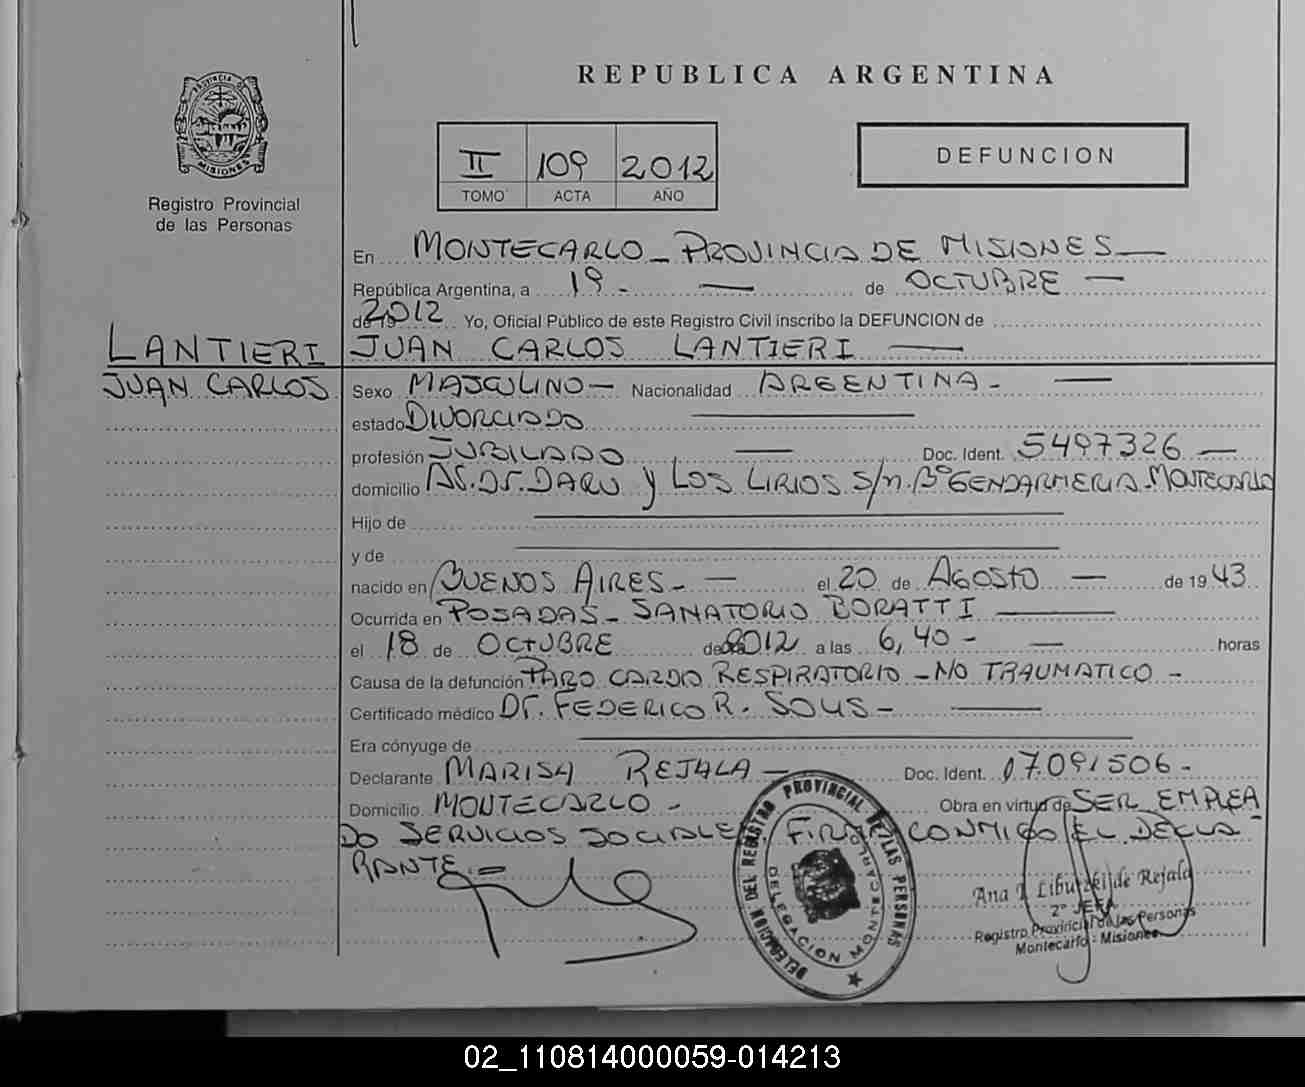 REPUBLICA ARGENTINA
PROVINCIA DE MISIONES
Registro Provincial
de las Personas
II 109 2012
TOMO ACTA AÑO
DEFUNCION
En MONTECARLO - PROVINCIA DE MISIONES —
República Argentina, a 19 - — de OCTUBRE —
de 19 2012 Yo, Oficial Público de este Registro Civil inscribo la DEFUNCION de
LANTIERI JUAN CARLOS LANTIERI —
JUAN CARLOS
Sexo MASCULINO — Nacionalidad ARGENTINA - —
estado DIVORCIADO —
profesión JUBILADO — Doc. Ident. 5497326 —
domicilio AV. Dr. DARU y LOS LIRIOS S/n. Bº GENDARMERIA MONTECARLO
Hijo de —
y de —
nacido en BUENOS AIRES - — el 20 de AGOSTO — de 1943
Ocurrida en POSADAS - SANATORIO BORATTI —
el 18 de OCTUBRE de 2012 a las 6,40 - — horas
Causa de la defunción PARO CARDIO RESPIRATORIO - NO TRAUMATICO -
Certificado médico Dr. FEDERICO R. SOLIS - —
Era cónyuge de —
Declarante MARISA REJALA — Doc. Ident. 17.091506 -
Domicilio MONTECARLO - Obra en virtud de SER EMPLEA
DO SERVICIOS SOCIALES FIRMA CONMIGO EL DECLA-
RANTE. =
DELEGACION DEL REGISTRO PROVINCIAL DE LAS PERSONAS
DELEGACION MONTECARLO
Ana Libutzki de Rejala
2º JEFA
Registro Provincial de las Personas
Montecarlo - Misiones
02_110814000059-014213